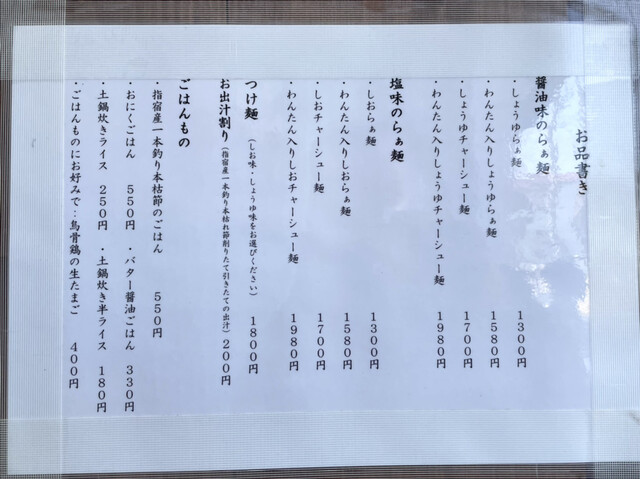 お品書き
醤油味のらぁ麺
・しょうゆらぁ麺 1300円
・わんたん入りしょうゆらぁ麺 1580円
・しょうゆチャーシュー麺 1700円
・わんたん入りしょうゆチャーシュー麺 1980円
塩味のらぁ麺
・しおらぁ麺 1300円
・わんたん入りしおらぁ麺 1580円
・しおチャーシュー麺 1700円
・わんたん入りしおチャーシュー麺 1980円
つけ麺 (しお味・しょうゆ味をお選びください) 1800円
お出汁割り(指宿産一本釣り本枯れ節削りたて引きたての出汁) 200円
ごはんもの
・指宿産一本釣り本枯節のごはん 550円
・おにくごはん 550円 ・バター醤油ごはん 330円
・土鍋炊きライス 250円 ・土鍋炊き半ライス 180円
・ごはんものにお好みで‥烏骨鶏の生たまご 400円